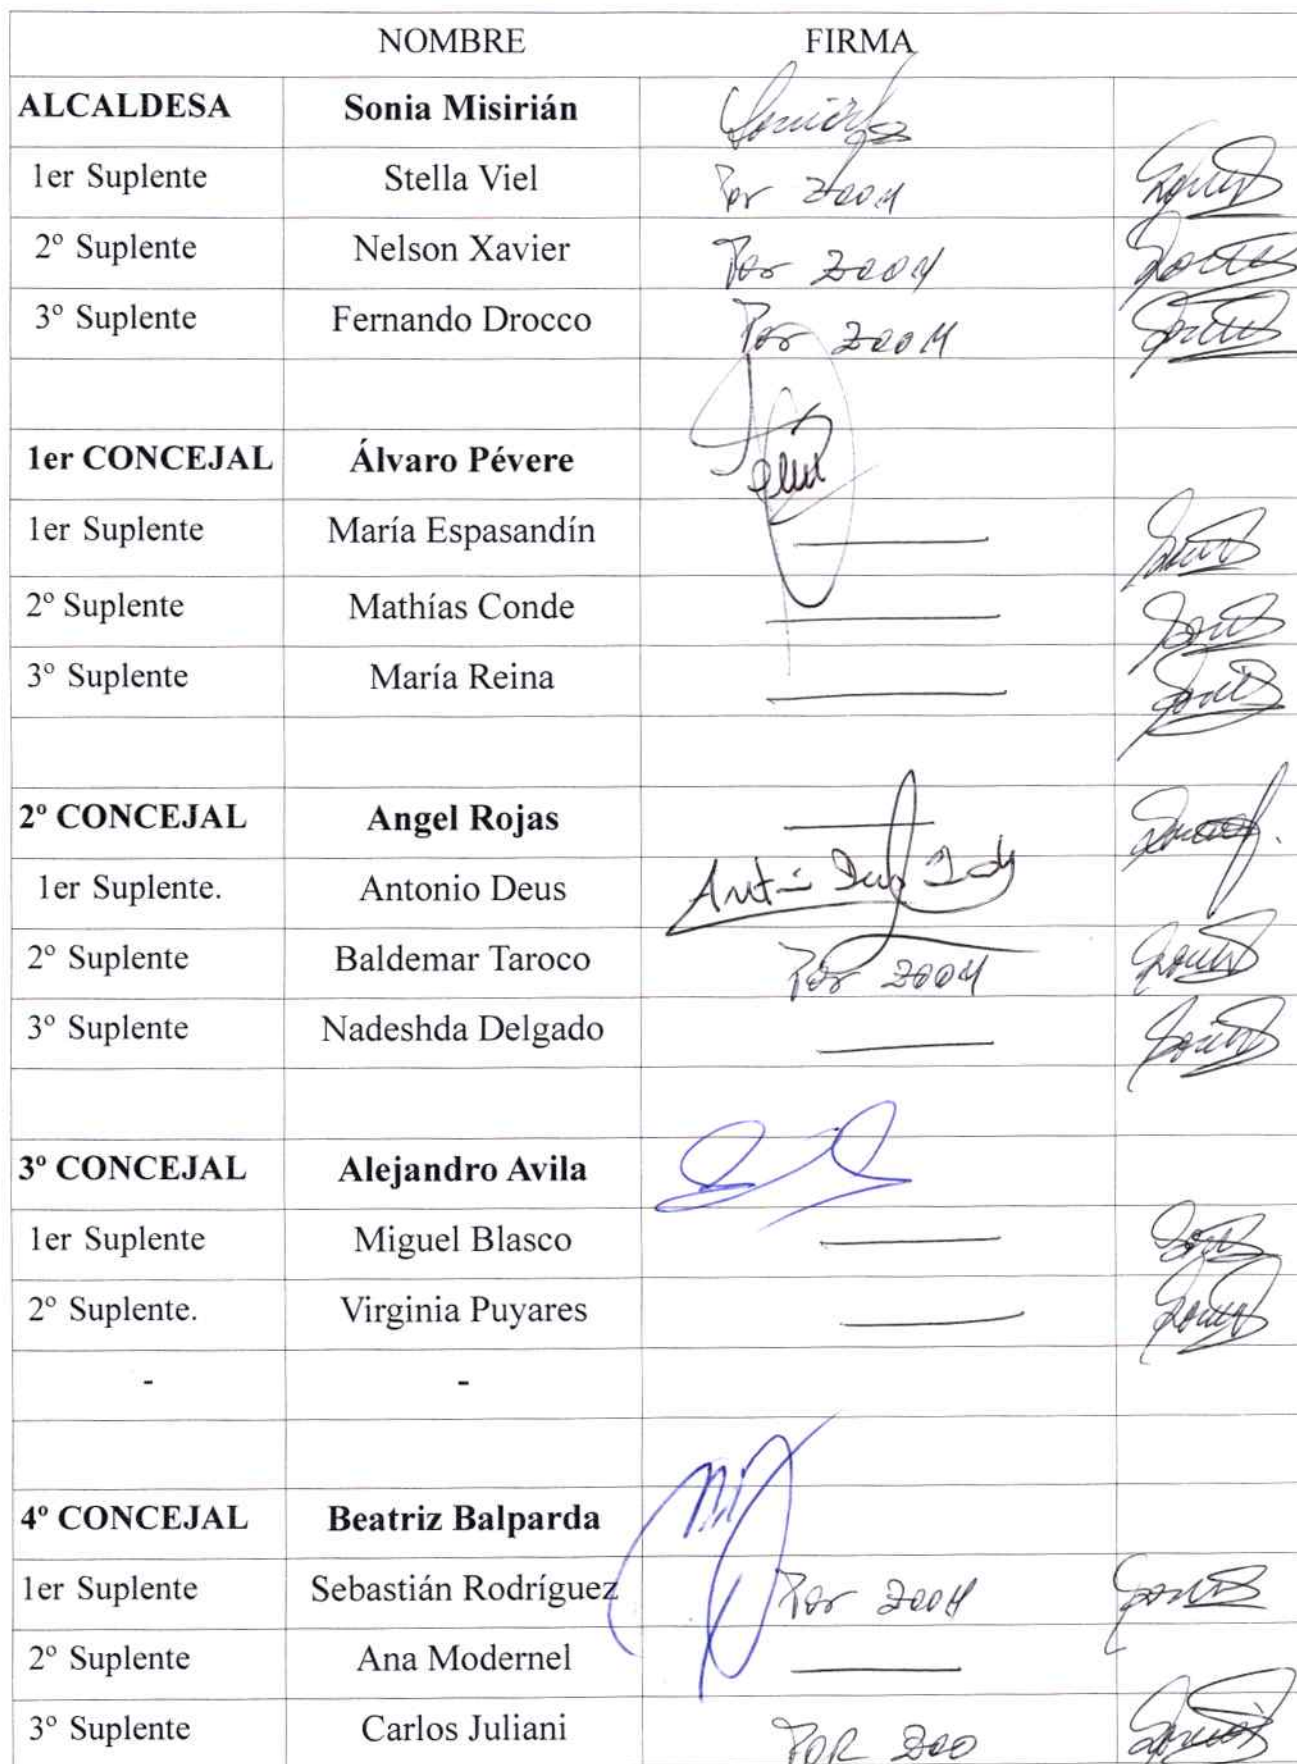 NOMBRE FIRMA
ALCALDESA Sonia Misirián
1er Suplente Stella Viel Por ZOOM
2º Suplente Nelson Xavier Por ZOOM
3º Suplente Fernando Drocco Por ZOOM
1er CONCEJAL Álvaro Pévere
1er Suplente María Espasandín
2º Suplente Mathías Conde
3º Suplente María Reina
2º CONCEJAL Angel Rojas
1er Suplente. Antonio Deus
2º Suplente Baldemar Taroco Por ZOOM
3º Suplente Nadeshda Delgado
3º CONCEJAL Alejandro Avila
1er Suplente Miguel Blasco
2º Suplente. Virginia Puyares
- -
4º CONCEJAL Beatriz Balparda
1er Suplente Sebastián Rodríguez Por ZOOM
2º Suplente Ana Modernel
3º Suplente Carlos Juliani POR ZOO